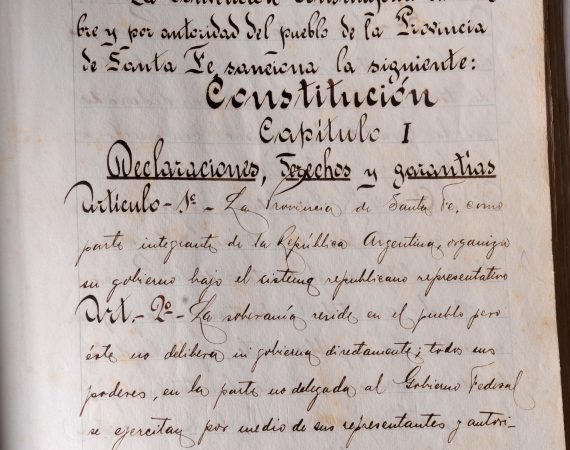 La Convención Constituyente
bre y por autoridad del pueblo de la Provincia
de Santa Fe sanciona la siguiente:
Constitución
Capítulo I
Declaraciones, derechos y garantías
Artículo - 1º - La Provincia de Santa Fe, como
parte integrante de la República Argentina, organiza
su gobierno bajo el sistema republicano representativo
Art. - 2º - La soberanía reside en el pueblo pero
éste no delibera ni gobierna directamente; todos sus
poderes, en la parte no delegada al Gobierno Federal
se ejercitan por medio de sus representantes y autori-